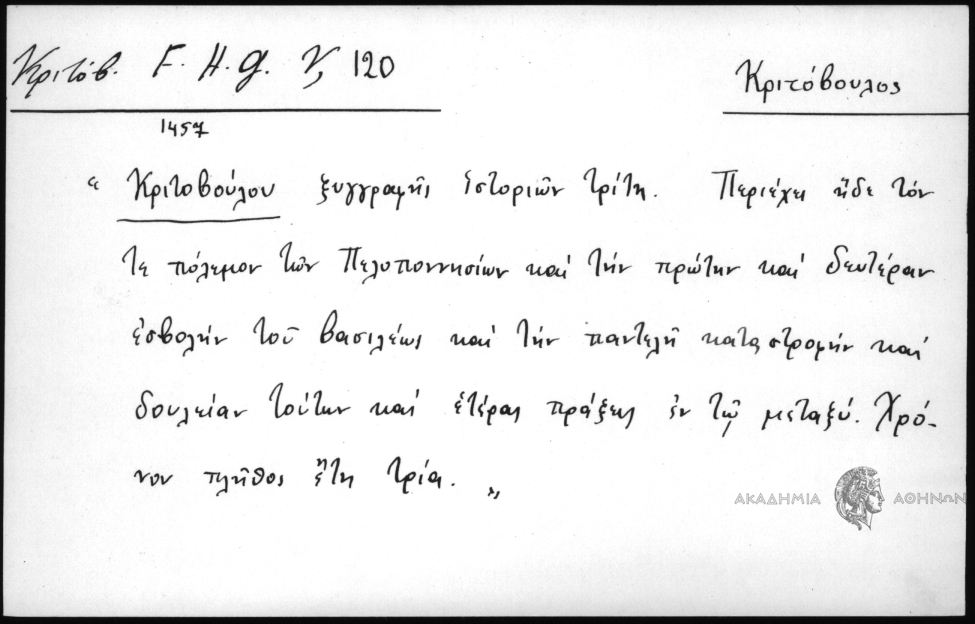 Κριτόβ. F. H. G. V, 120
Κριτόβουλος
1457
“ Κριτοβούλου ξυγγραφῆς ἱστοριῶν τρίτη. Περιέχει ἥδε τόν
τε πόλεμον τῶν Πελοποννησίων καί τήν πρώτην καί δευτέραν
ἐσβολήν τοῦ βασιλέως καί τήν παντελῆ καταστροφήν καί
δουλείαν τούτων καί ἑτέρας πράξεις ἐν τῷ μεταξύ. Χρό-
νον πλῆθος ἔτη τρία. „
ΑΚΑΔΗΜΙΑ ΑΘΗΝΩΝ